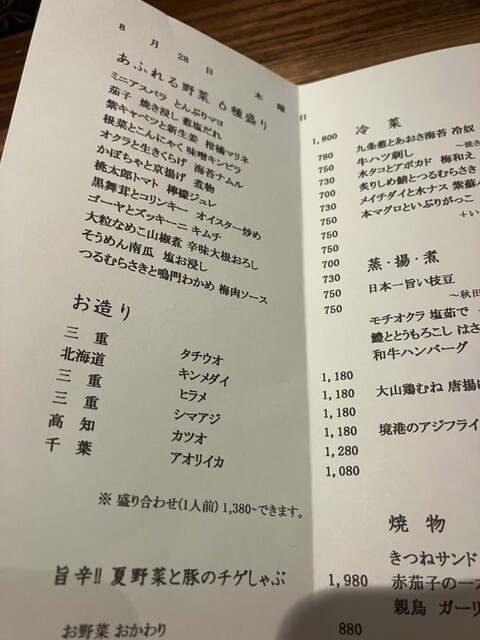 8月28日 木曜日
あふれる野菜 6種盛り 1,800
ミニアスパラ とんぶりマヨ 780
茄子 焼き浸し 薬塩だれ 750
紫キャベツと新生姜 柑橘マリネ 730
根菜とこんにゃく 味噌キンピラ 700
オクラと生きくらげ 海苔ナムル 730
かぼちゃと京揚げ 煮物 750
桃太郎トマト 檸檬ジュレ 750
黒舞茸とコリンキー オイスター炒め 750
ゴーヤとズッキーニ キムチ 700
大粒なめこ山椒煮 辛味大根おろし 730
そうめん南瓜 塩お浸し 750
つるむらさきと鳴門わかめ 梅肉ソース
お造り
三重 タチウオ 1,180
北海道 キンメダイ 1,180
三重 ヒラメ 1,180
三重 シマアジ 1,180
高知 カツオ 1,280
千葉 アオリイカ 1,080
※ 盛り合わせ(1人前) 1,380~できます。
旨辛!! 夏野菜と豚のチゲしゃぶ 1,980
お野菜 おかわり 880
冷菜
九条葱とあおさ海苔 冷奴
～焼き
牛ハツ刺し
水タコとアボカド 梅和え
炙りしめ鯖とつるむらさき
メイチダイと水ナス 紫蘇
本マグロといぶりがっこ
+い
蒸・揚・煮
日本一旨い枝豆
～秋田
モチオクラ 塩茹で
鱧ととうもろこし はさ
和牛ハンバーグ
大山鶏むね 唐揚げ
境港のアジフライ
焼物
きつねサンド
赤茄子の一
親鳥 ガーリ